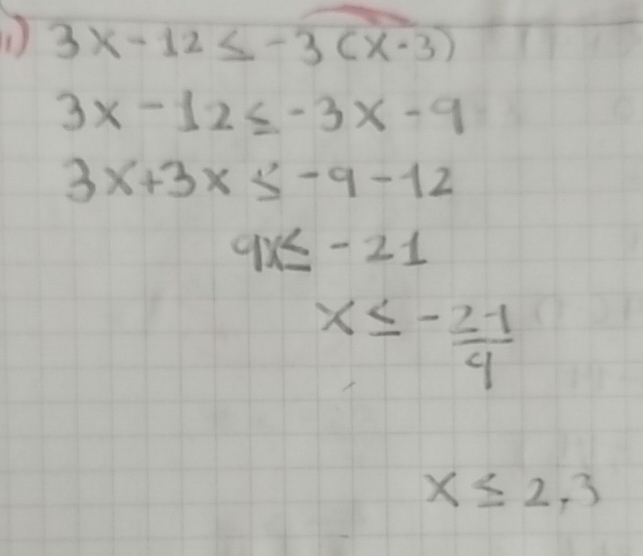 i) 3x - 12 ≤ -3 (x - 3)
3x - 12 ≤ -3x - 9
3x + 3x ≤ -9 - 12
9x ≤ -21
x ≤ -21/9
x ≤ 2,3